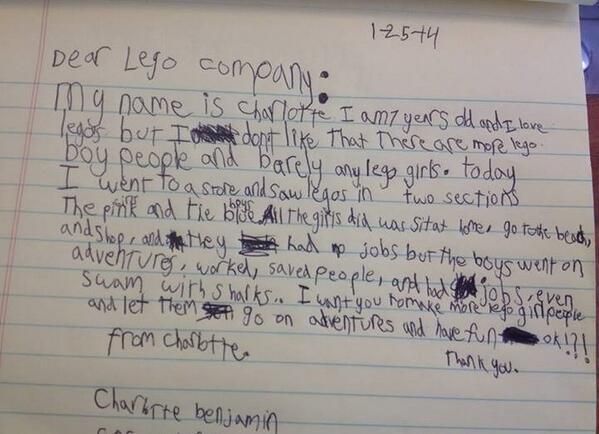 1-25-14
Dear Lego company:
My name is Charlotte I am 7 years old and I love
legos but I don't like that There are more lego
boy people and barely any lego girls. today
I went to a store and saw legos in two sections
The pink and the blue boys All the girls did was sit at home, go to the beach,
and shop, and they had no jobs but the boys went on
adventures, worked, saved people, and had jobs, even
swam with sharks.. I want you to make more lego girl people
and let them go on adventures and have fun ok!?!
from Charlotte.
Thank you.
Charlotte benjamin